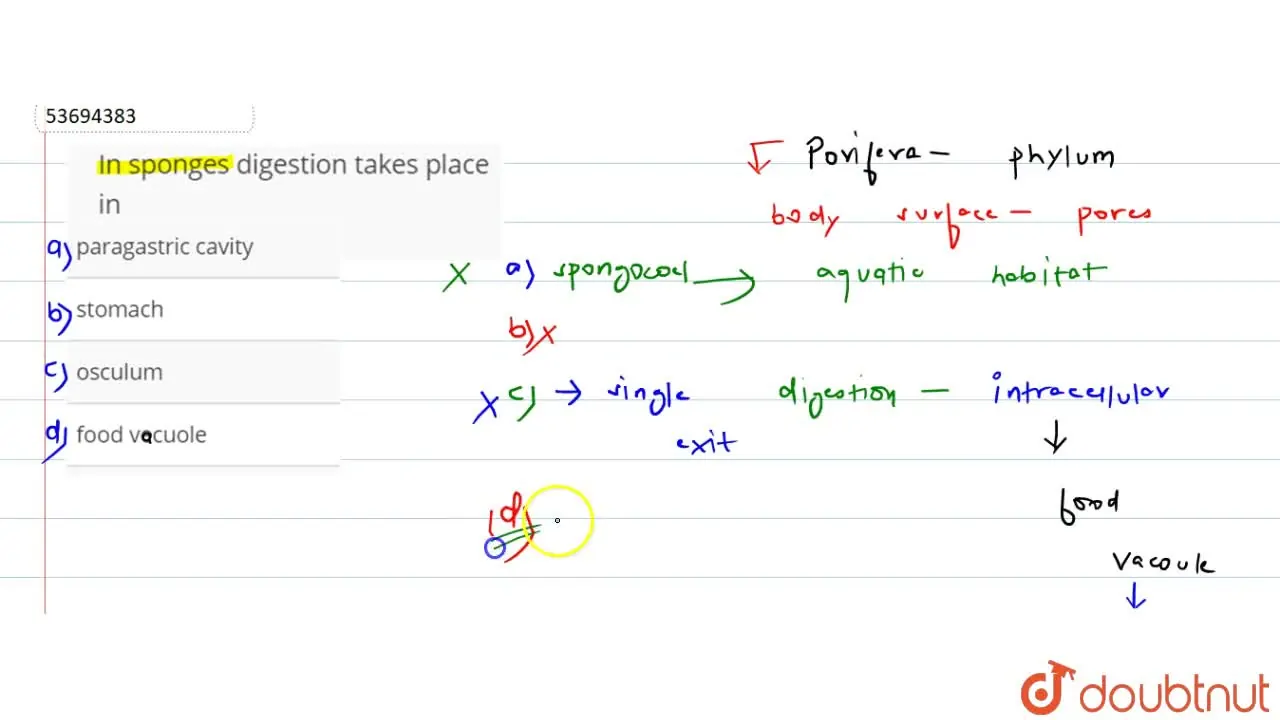 53694383
In sponges digestion takes place
in
a) paragastric cavity
b) stomach
c) osculum
d) food vacuole
Porifera – phylum
body surface – pores
X a) spongocoel → aquatic habitat
b) X
X c) → single exit
digestion – intracellular
↓
food
vacoule
↓
(d)
doubtnut